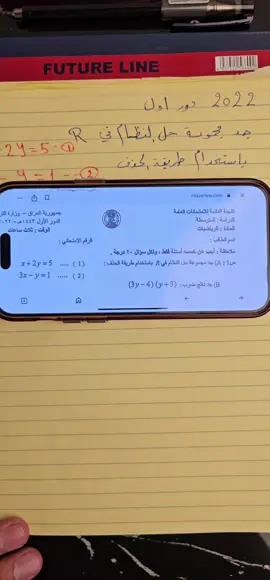 FUTURE LINE
2022 دور اول
جد مجموعة حل النظام في R
باستخدام طريقة الحذف
2y=5 --①
- y = 1 --②
جمهورية العراق - وزارة
اللجنة الدائمة للامتحانات العامة
الدراسة : المتوسطة
المادة : الرياضيات
الوقت : ثلاث ساعات
اسم الطالب :
الرقم الامتحاني :
ملاحظة : أجب عن خمسة أسئلة فقط ، ولكل سؤال ٢٠ درجة .
س1 : A) جد مجموعة حل النظام في R باستخدام طريقة الحذف :
x + 2y = 5 ..... ( 1 )
3x - y = 1 ..... ( 2 )
B) جد ناتج ضرب : (3y - 4) (y + 3)